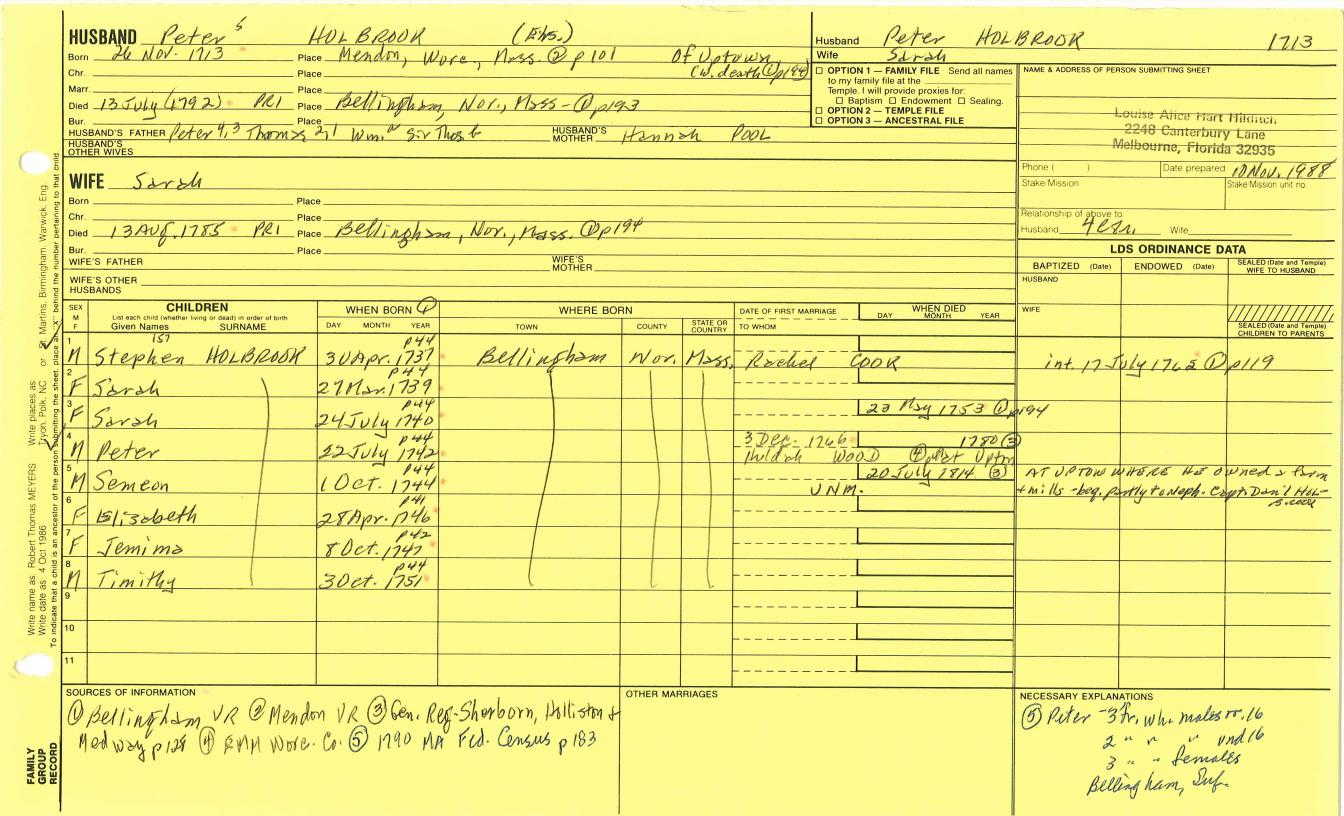 HUSBAND Peter 5 HOLBROOK (Ebs.)
Born 26 Nov. 1713 Place Mendon, Worc., Mass. ② p 101 Of Uptown,
Chr. Place (w. death ① p194)
Marr. Place
Died 13 July (1792) PR1 Place Bellingham, Nor., Mass - ① p193
Bur. Place
HUSBAND'S FATHER Peter 4,3 Thomas 2,1 Wm. Sir Thos b HUSBAND'S MOTHER Hannah POOL
HUSBAND'S OTHER WIVES
WIFE Sarah
Born Place
Chr. Place
Died 13 Aug. 1785 PR1 Place Bellingham, Nor., Mass. ① p194
Bur. Place
WIFE'S FATHER WIFE'S MOTHER
WIFE'S OTHER HUSBANDS
Husband Peter HOLBROOK 1713
Wife Sarah
☐ OPTION 1 — FAMILY FILE Send all names
to my family file at the
Temple. I will provide proxies for:
☐ Baptism ☐ Endowment ☐ Sealing.
☐ OPTION 2 — TEMPLE FILE
☐ OPTION 3 — ANCESTRAL FILE
NAME & ADDRESS OF PERSON SUBMITTING SHEET
Louise Alice Hart Hildreth
2248 Canterbury Lane
Melbourne, Florida 32935
Phone ( ) Date prepared 10 Nov. 1988
Stake Mission Stake Mission unit no.
Relationship of above to:
Husband 4 Wife
LDS ORDINANCE DATA
BAPTIZED (Date) ENDOWED (Date) SEALED (Date and Temple) WIFE TO HUSBAND
HUSBAND
WIFE
SEALED (Date and Temple) CHILDREN TO PARENTS
SEX M F
CHILDREN
List each child (whether living or dead) in order of birth
Given Names SURNAME
WHEN BORN ①
DAY MONTH YEAR
WHERE BORN
TOWN COUNTY STATE OR COUNTRY
DATE OF FIRST MARRIAGE
TO WHOM
WHEN DIED
DAY MONTH YEAR
157 p44
1 M Stephen HOLBROOK 30 Apr. 1737 Bellingham Nor. Mass. Rachel COOK int. 17 July 1762 ① p119
p44
2 F Sarah 27 Mar. 1739
p44 23 May 1753 ① p194
3 F Sarah 24 July 1740
p44 3 Dec. 1766 1780 ③
4 M Peter 22 July 1742 Huldah WOOD Upton
p44 20 July 1814 ③ AT UPTON WHERE HE owned a farm
5 M Semeon 1 Oct. 1744 UNM. + mills - beq. partly to neph. Capt. Dan'l HOL-
BROOK
p41
6 F Elizabeth 28 Apr. 1746
p42
7 F Jemima 8 Oct. 1747
p44
8 M Timithy 3 Oct. 1751
9
10
11
SOURCES OF INFORMATION
① Bellingham VR ② Mendon VR ③ Gen. Reg-Sherborn, Holliston &
Medway p128 ④ EMM Worc. Co. ⑤ 1790 MA Fed. Census p 183
OTHER MARRIAGES
NECESSARY EXPLANATIONS
⑤ Peter - 3 fr. wh. males ov. 16
2 " " " und 16
3 " " females
Bellingham, Suf.
Write name as: Robert Thomas MEYERS Write places as: Tryon, Polk, NC or St. Martins, Birmingham, Warwick, Eng.
Write date as: 4 Oct 1986
To indicate that a child is an ancestor of the person submitting the sheet, place an "X" behind the number pertaining to that child.
FAMILY GROUP RECORD